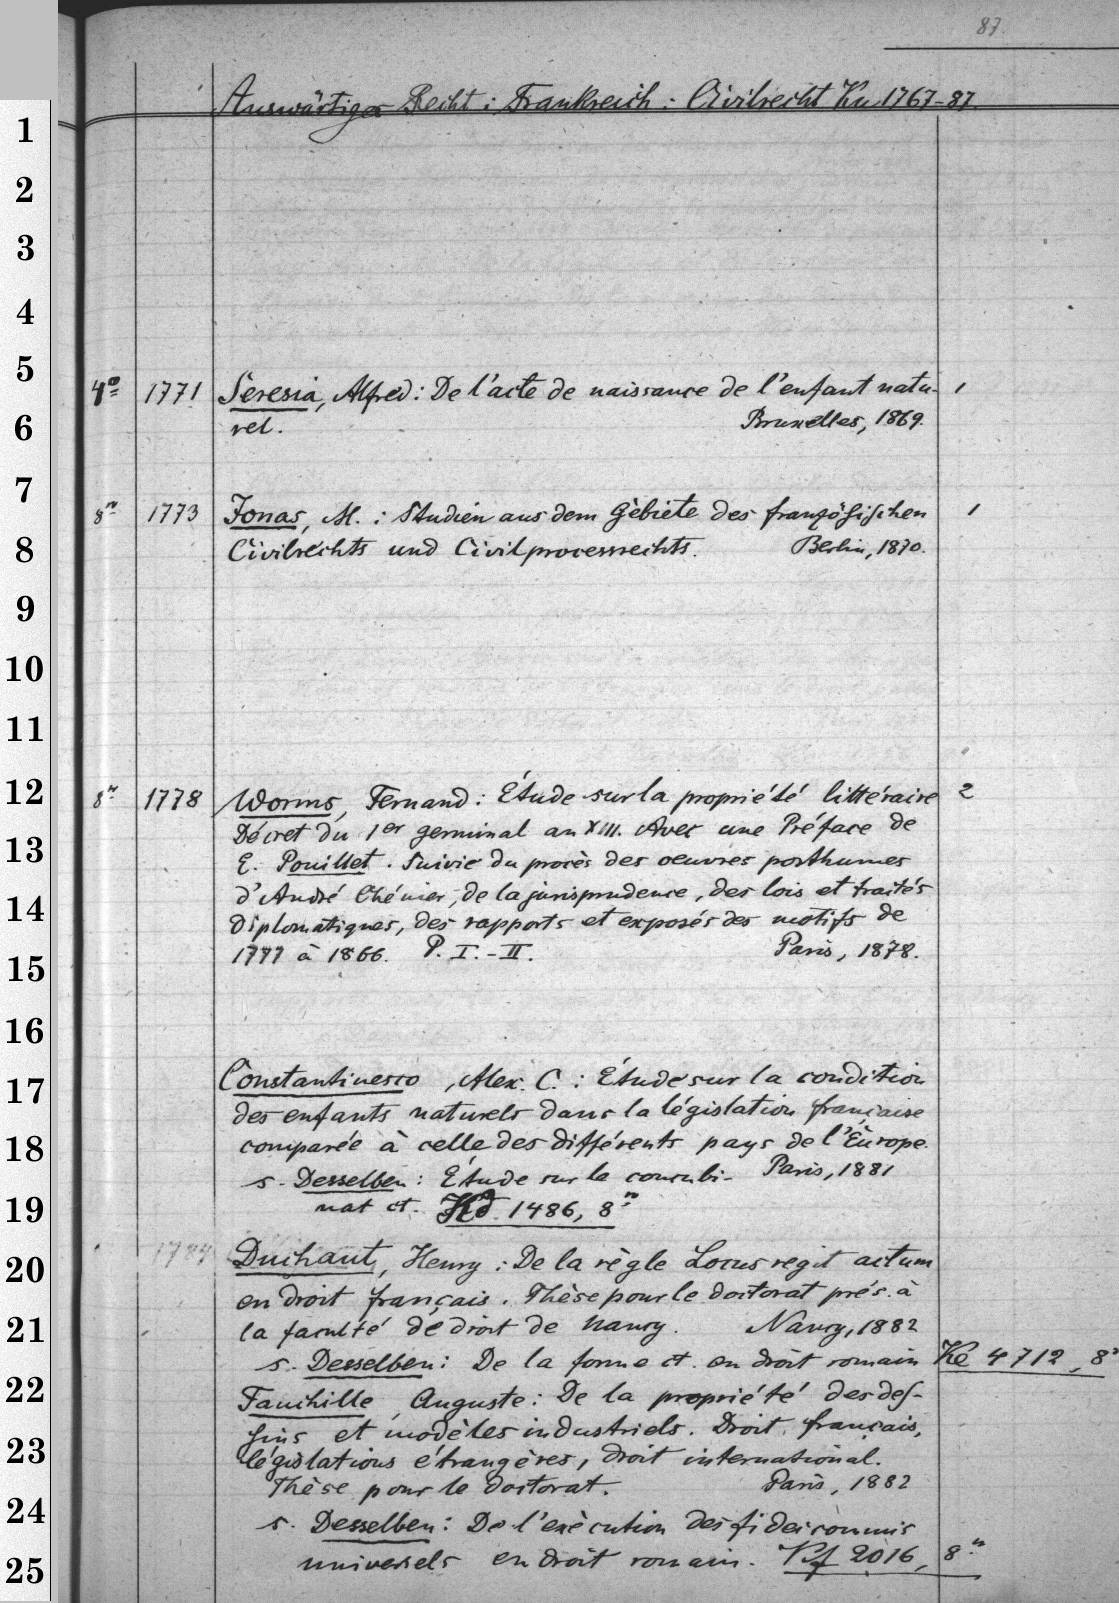 87.
Auswärtiges Recht: Frankreich: Civilrecht Kn 1767-87.
1
2
3
4
5
4º 1771 Seresia, Alfred: De l'acte de naissance de l'enfant natu- 1
6
rel. Bruxelles, 1869.
7
8º 1773 Jonas, M.: Studien aus dem Gebiete des französischen 1
8
Civilrechts und Civilprocessrechts. Berlin, 1870.
9
10
11
12
8º 1778 Worms, Fernand: Étude sur la propriété littéraire 2
Décret du 1er germinal an XIII. Avec une Préface de
13
E. Pouillet. Suivie du procès des oeuvres posthumes
d'André Chénier, de la jurisprudence, des lois et traités
14
diplomatiques, des rapports et exposés des motifs de
1777 à 1866. P. I.-II. Paris, 1878.
15
16
17
Constantinesco, Alex. C.: Étude sur la condition
des enfants naturels dans la législation française
18
comparée à celle des différents pays de l'Europe.
s. Desselben: Étude sur le concubi- Paris, 1881
19
nat ct. Kd 1486, 8º
20
1784 Duchaut, Henry: De la règle Locus regit actum
en droit français. Thèse pour le doctorat prés. à
21
la faculté de droit de Nancy. Nancy, 1882
s. Desselben: De la forme ct. en droit romain Ke 4712, 8º
22
Fauchille, Auguste: De la propriété des des-
sins et modèles industriels. Droit français,
23
législations étrangères, droit international.
Thèse pour le doctorat. Paris, 1882
24
s. Desselben: De l'exécution des fideicommis
25
universels en droit romain. Kf 2016, 8º